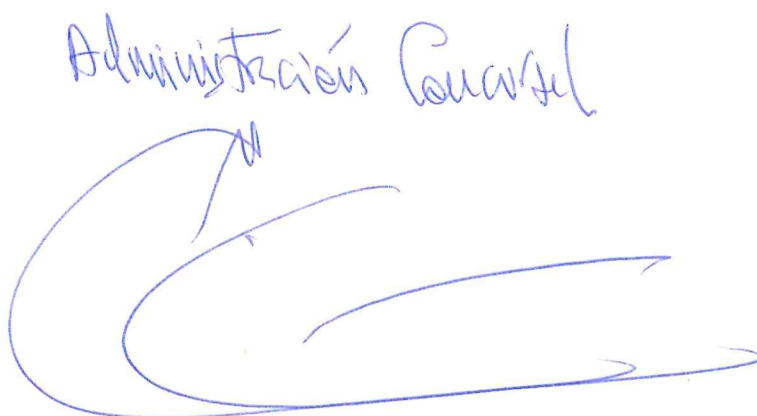 Administración Concursal